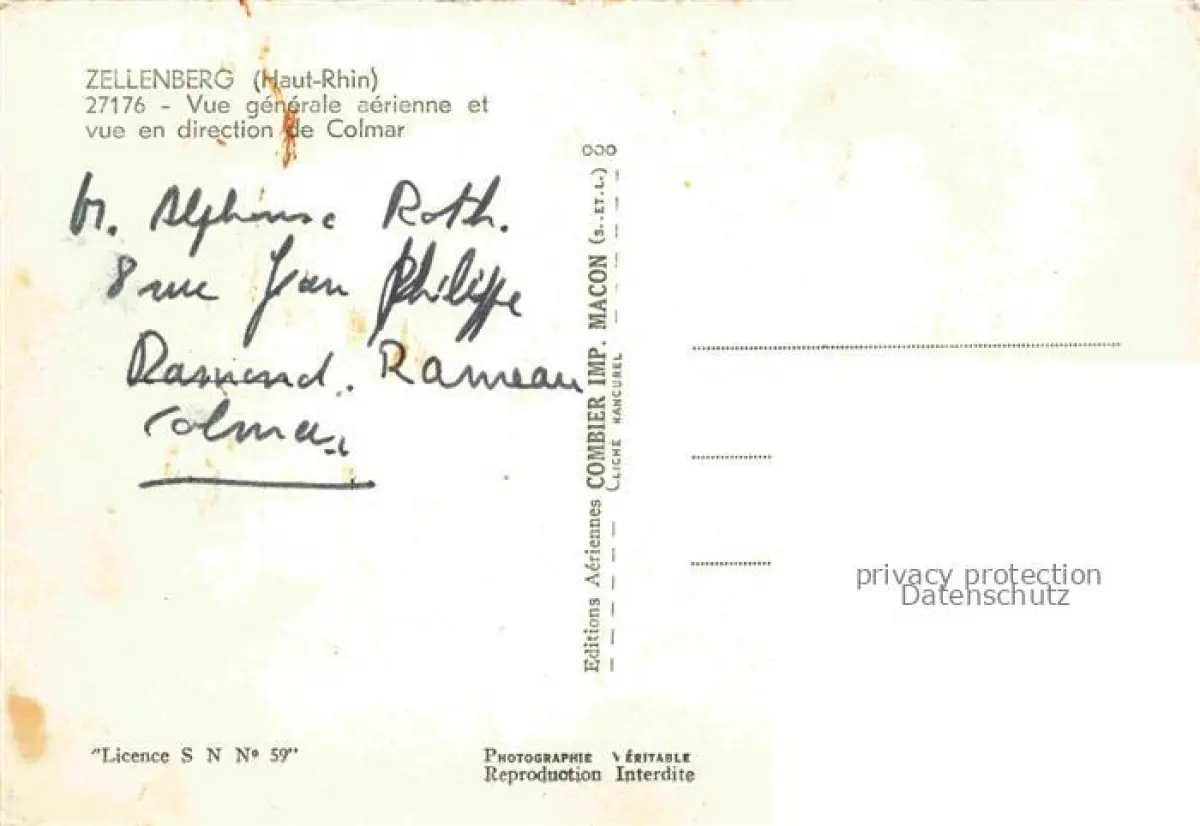 ZELLENBERG (Haut-Rhin)
27176 - Vue générale aérienne et
vue en direction de Colmar
M. Alphonse Roth.
8 rue Jean Philippe
Ramend. Rameau
Colmar
Editions Aériennes COMBIER IMP. MACON (S.-ET-L.)
CLICHÉ RANCUREL
privacy protection
Datenschutz
"Licence S N Nº 59"
PHOTOGRAPHIE VÉRITABLE
Reproduction Interdite